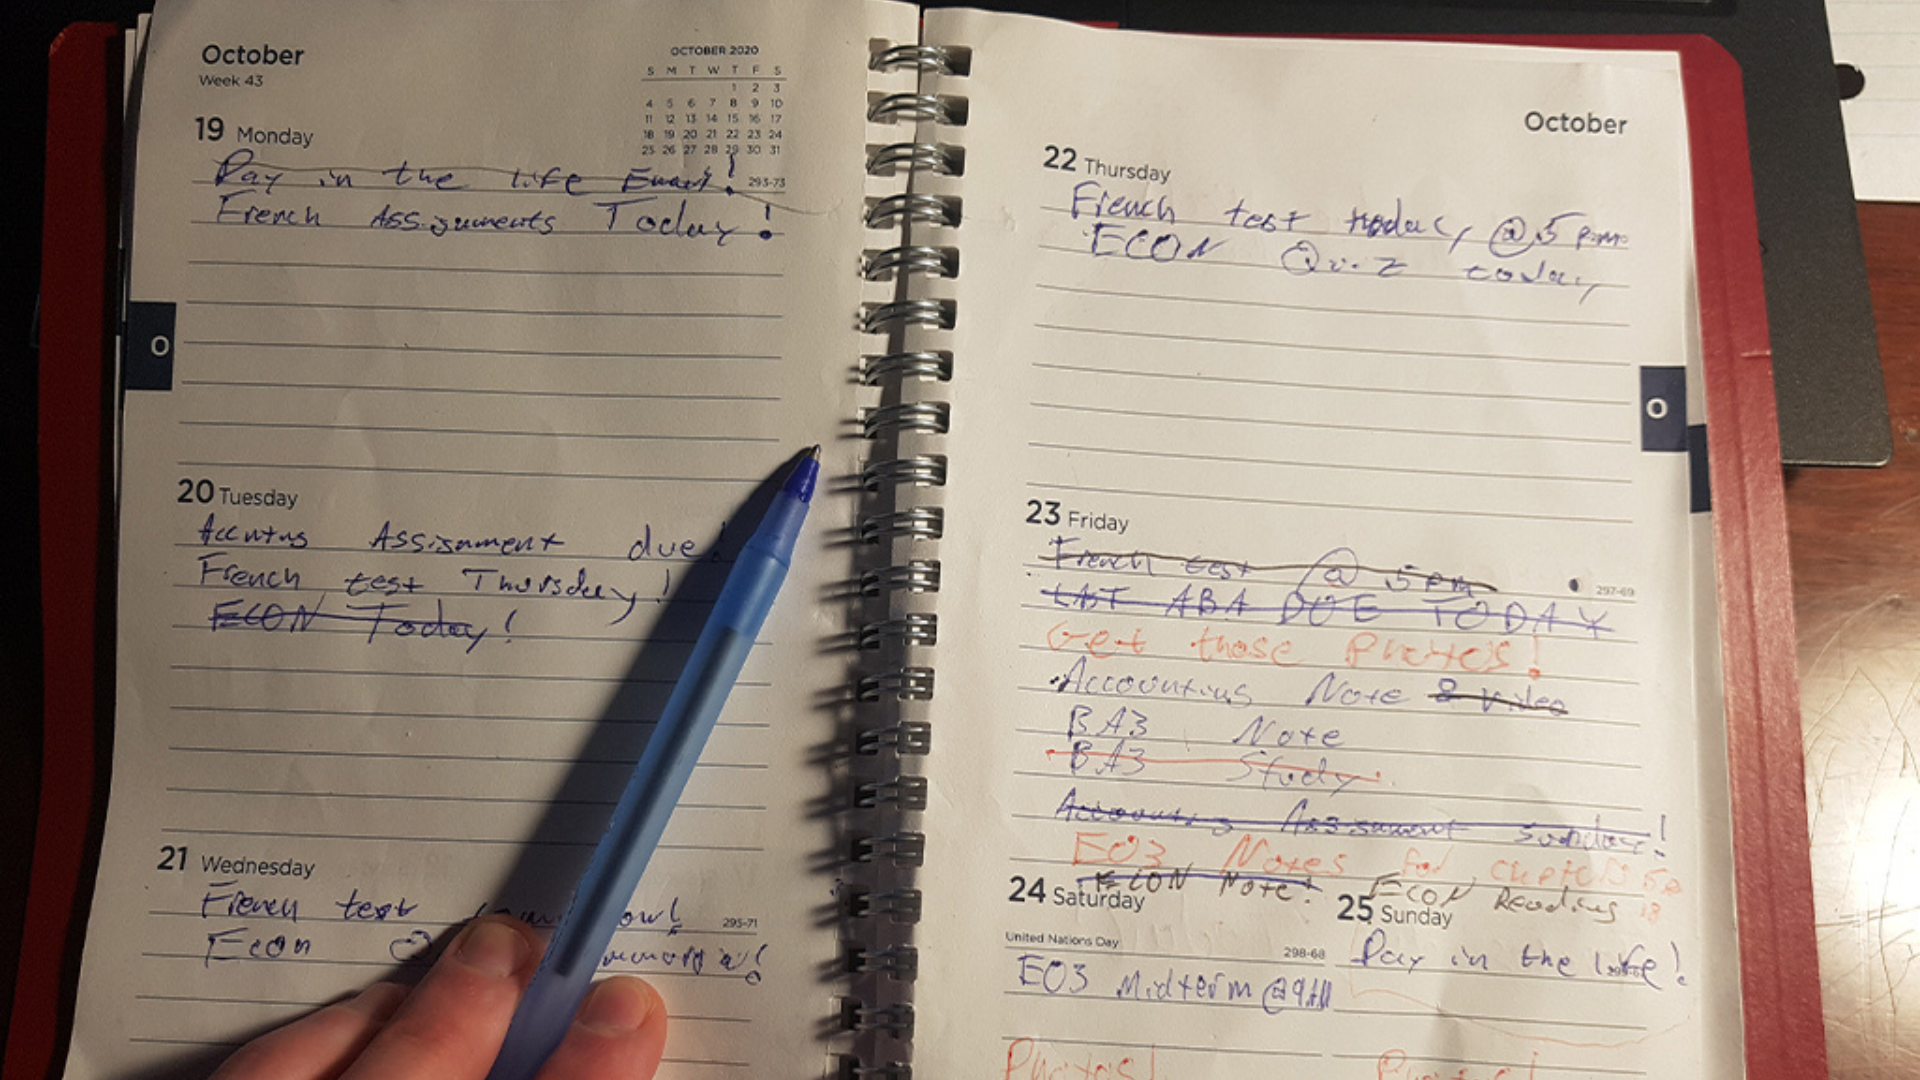 October
Week 43
OCTOBER 2020
S M T W T F S
1 2 3
4 5 6 7 8 9 10
11 12 13 14 15 16 17
18 19 20 21 22 23 24
25 26 27 28 29 30 31
19 Monday
Day in the life Email!
293-73
French Assignments Today!
O
20 Tuesday
Assignment due!
French test Thursday!
ECON Today!
21 Wednesday
French test
295-71
Econ
October
22 Thursday
French test today @ 5 p.m.
ECON Quiz today
O
23 Friday
French test @ 5 pm
297-69
LAST ABA DUE TODAY
Get those Photos!
Accounting Note & video
BA3 Note
BA3 Study
Accounting Assignment Sunday!
EO3 Notes for
ECON Note!
ECON Reading
24 Saturday
United Nations Day
298-68
EO3 Midterm @ 9 AM
Photos!
25 Sunday
Day in the life!
Photos!